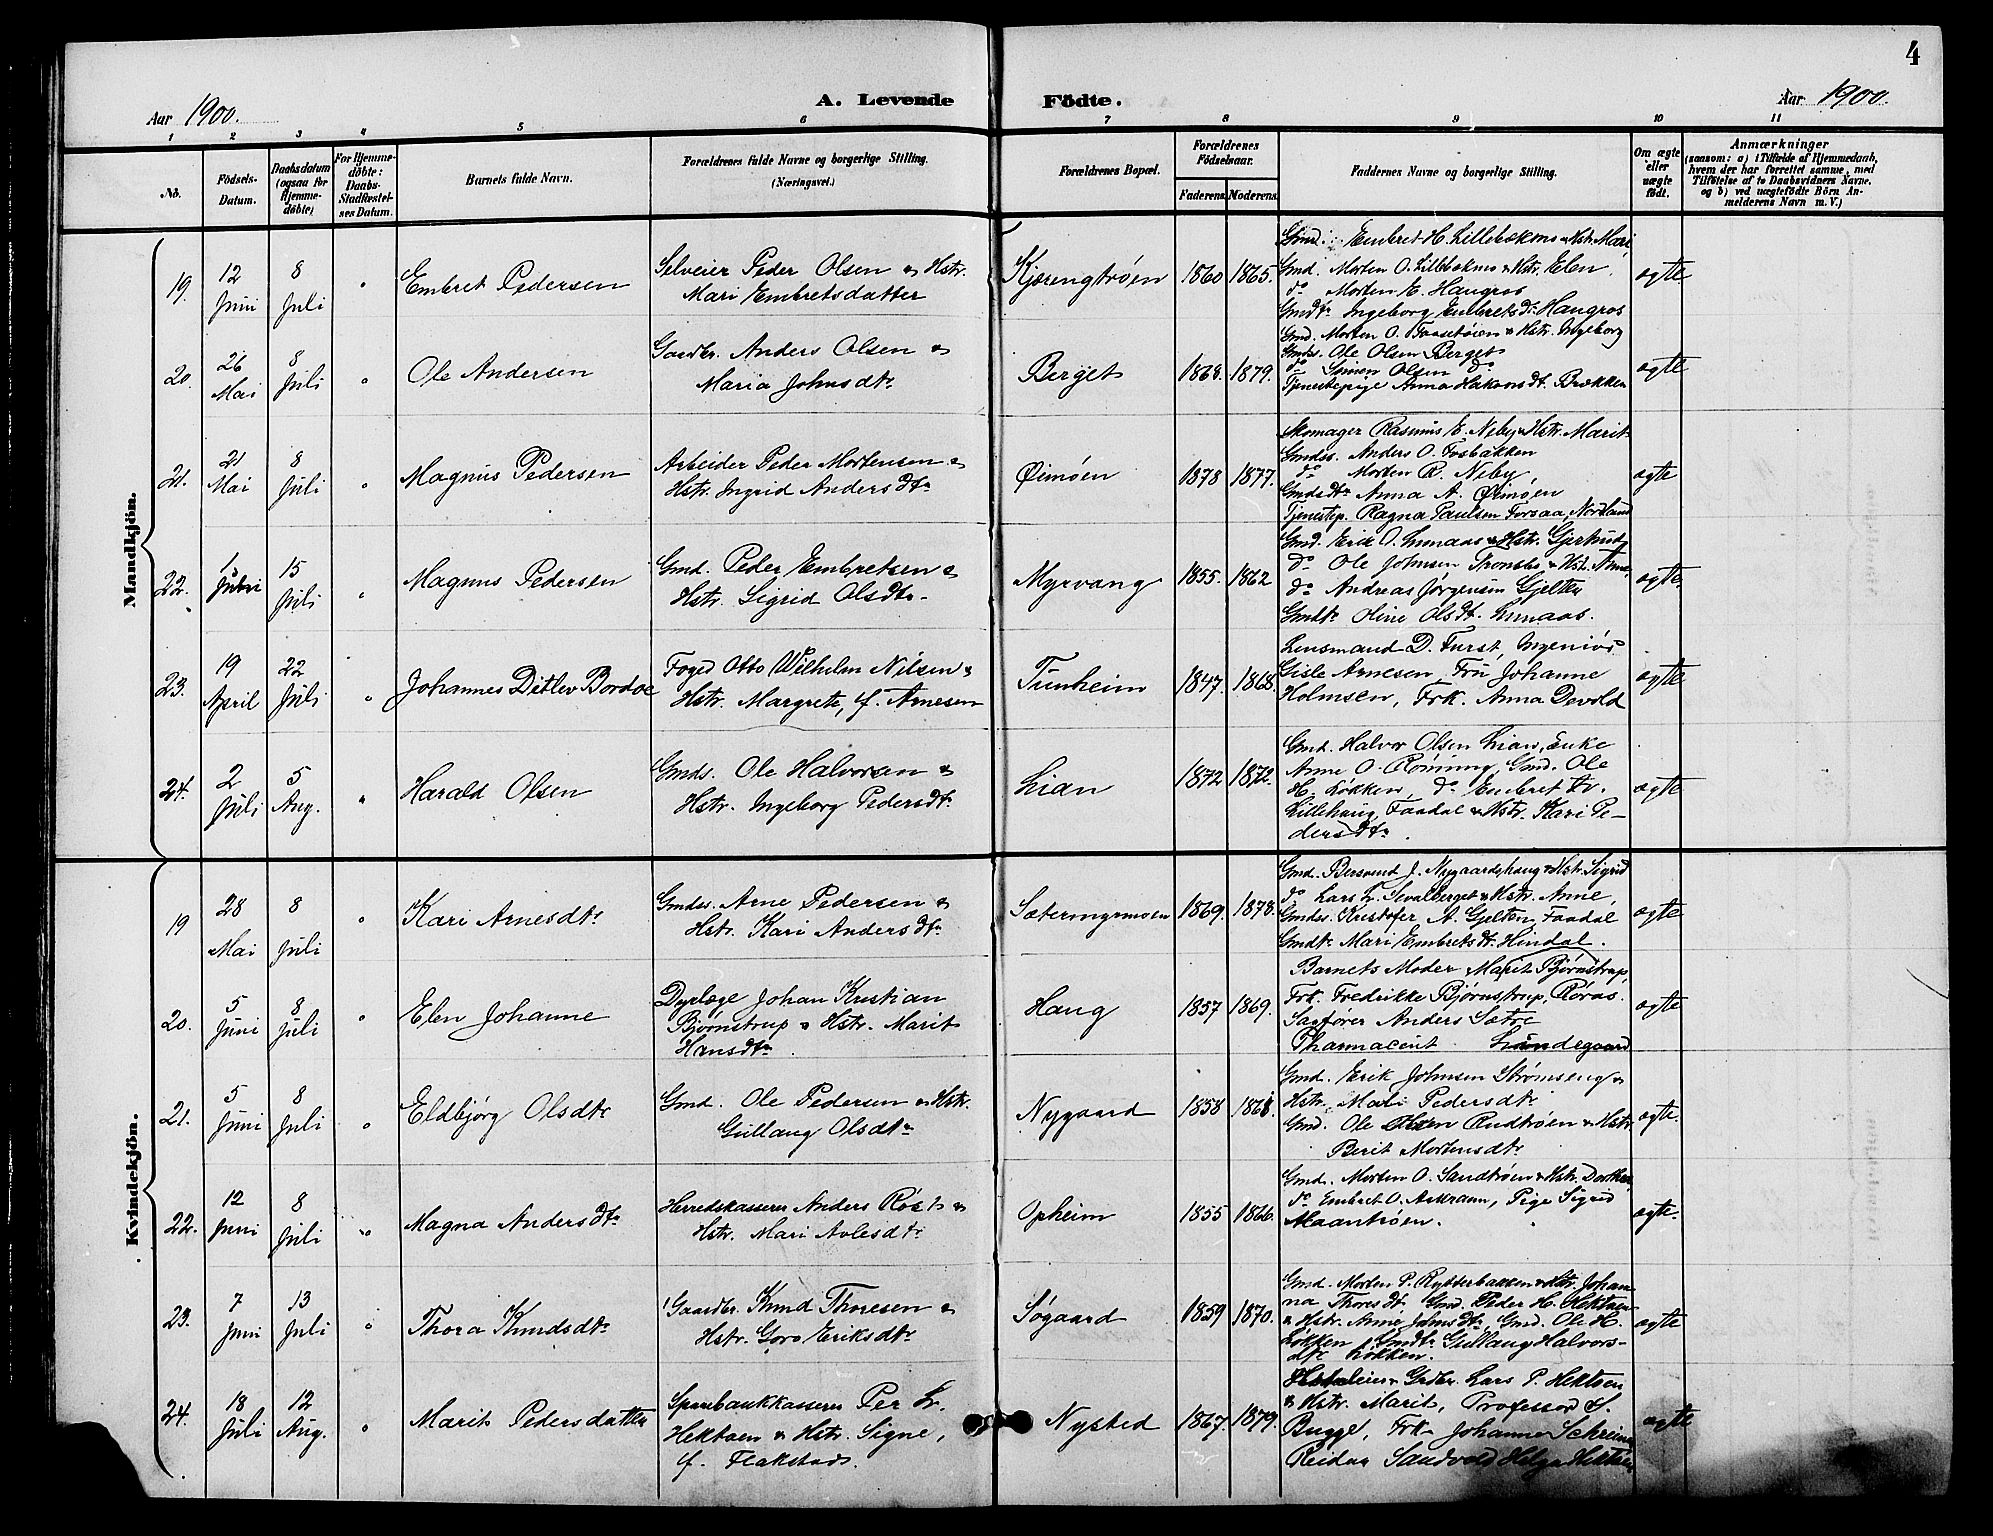 4
Aar 1900.
A. Levende Födte.
Aar 1900.
1 2 3 4 5 6 7 8 9 10 11
No.
Födsels-
Datum.
Daabsdatum
(ogsaa for
Hjemme-
döbte)
For Hjemme-
döbte:
Daabs-
Stadfæstel-
ses Datum.
Barnets fulde Navn.
Forældrenes fulde Navne og borgerlige Stilling.
(Næringsvei.)
Forældrenes Bopæl.
Forældrenes
Födselsaar.
Faderens. Moderens.
Faddernes Navne og borgerlige Stilling.
Om ægte
eller
uægte
født.
Anmærkninger
(saasom: a) i Tilfælde af Hjemmedaab,
hvem der har forrettet samme, med
Tilföielse af to Daabsvidners Navne,
og b) ved uægtefödte Börn An-
melderens Navn m. V.)
Mandkjön.
19.
12
Juni
8
Juli
"
Embret Pedersen
Selveier Peder Olsen & Hstr.
Mari Embretsdatter
Kjærengtrøen
1860 1865.
Gmd. Embret H. Lillebækmo & Hstr. Mari,
Gmd. Morten O. Lillebækmo & Hstr. Elen.
do Morten E. Haugros
Gmdtr. Ingeborg Embretsdtr. Haugros
ægte
20.
26
Mai
8
Juli
"
Ole Andersen
Gaardbr. Anders Olsen &
Maria Johnsdtr.
Berget
1868. 1879.
Gmd. Morten O. Faasetøien & Hstr. Ingeborg
Gmdss. Ole Olsen Berget
do Simen Olsen do
Tjenestepige Anna Hakonsdt. Brækken
ægte
21.
21
Mai
8
Juli
"
Magnus Pedersen
Arbeider Peder Mortensen &
Hstr. Ingrid Andersdtr.
Øimoen
1878 1877.
Skomager Rasmus E. Neby & Hstr. Marit
Gmdss. Anders O. Fosbakken
do Morten R. Neby,
Gmdsdtr. Anna A. Øimoen
Tjenestep. Ragna Paulsen Forsaa, Nordland
ægte
22.
5
Juni
15
Juli
"
Magnus Pedersen
Gmd. Peder Embretsen &
Hstr. Sigrid Olsdtr.
Myrvang
1855. 1862
Gmd. Erik O. Lunaas & Hstr. Gjertrud,
do Ole Johnsen Tronsbo & Hst. Anne,
do Andreas Jørgensen Gjelten
Gmdtr. Oline Olsdt. Lunaas.
ægte.
23.
19
April
22
Juli
"
Johannes Ditlev Bordoe
Foged Otto Wilhelm Nilsen &
Hstr. Margrete, f. Arnesen
Tunheim
1847. 1868.
Lensmand D. Furst, Ingeniør
Gisle Arnesen, Fru Johanne
Holmsen, Frk. Anna Devold
ægte
24.
2
Juli
5
Aug.
"
Harald Olsen
Gmds. Ole Halvorsen &
Hstr. Ingeborg Pedersdtr.
Lian
1872 1872.
Gmd. Halvor Olsen Lian, Enke
Anne O. Røining, Gmd. Ole
H. Løkken, do Embret Tr.
Lillehaug, Faadal & Hstr. Kari Pe-
dersdtr.
ægte
Kvindekjön.
19
28
Mai
8
Juli
"
Kari Arnesdtr.
Gmdss. Arne Pedersen &
Hstr. Kari Andersdtr.
Sætermyrmoen
1869. 1878.
Gmd. Bersvend J. Nygaardshaug & Hstr. Sigrid
do Lars L. Sevalberget & Hstr. Anne,
Gmdss. Kristofer A. Gjelten, Faadal
Gmdtr. Mari Embretsdt. Hindal.
ægte
20.
5
Juni
8
Juli
"
Elen Johanne
Dyrlæge Johan Kristian
Bjørnstrup & Hstr. Marit
Hansdtr.
Haug
1857 1869.
Barnets Moder Marit Bjørnstrup,
Frk. Fredrikke Bjørnstrup, Røros.
Sagfører Anders Sætre
Pharmaceut Lundegaard
ægte
21.
5
Juni
8
Juli
"
Eldbjørg Olsdtr
Gmd. Ole Pedersen & Hstr.
Gullaug Olsdtr.
Nygaard
1858 1861.
Gmd. Erik Johnsen Strømseng &
Hstr. Mari Pedersdtr.
Gmd. Ole Olsen Rudtrøen & Hstr.
Berit Mortensdtr.
ægte.
22.
12
Juni
8
Juli
"
Magna Andersdtr.
Herredskasserer Anders Røst &
Hstr. Mari Avlesdtr.
Opheim
1855 1866.
Gmd. Morten O. Sandtrøen & Hstr. Dorthea
do Embret O. Aukraun, Pige Sigrid
Maantrøen.
ægte.
23.
7
Juni
13
Juli
"
Thora Knudsdtr.
Gaardbr. Knud Thoresen &
Hstr. Goro Eriksdtr.
Søgaard
1859 1870.
Gmd. Morten P. Rytterbakken & Hstr. Johan-
na Thoresdt. Gmd. Peder H. Hektoen
& Hstr. Anne Johnsdtr, Gmd. Ole H.
Løkken, Gmdtr. Gullaug Halvors-
dtr. Løkken.
ægte
24.
18
Juli
12
Aug.
"
Marit Pedersdatter
Sparebankkasserer Per L.
Hektoen & Hstr. Signe,
f. Flakstad.
Nysted
1867. 1879.
Grdbr. Lars P. Hektoen
& Hstr. Marit, Professor S.
Bugge, Frk. Johanne Schreiner
Reidar Sandvold Helga Hektoen
ægte